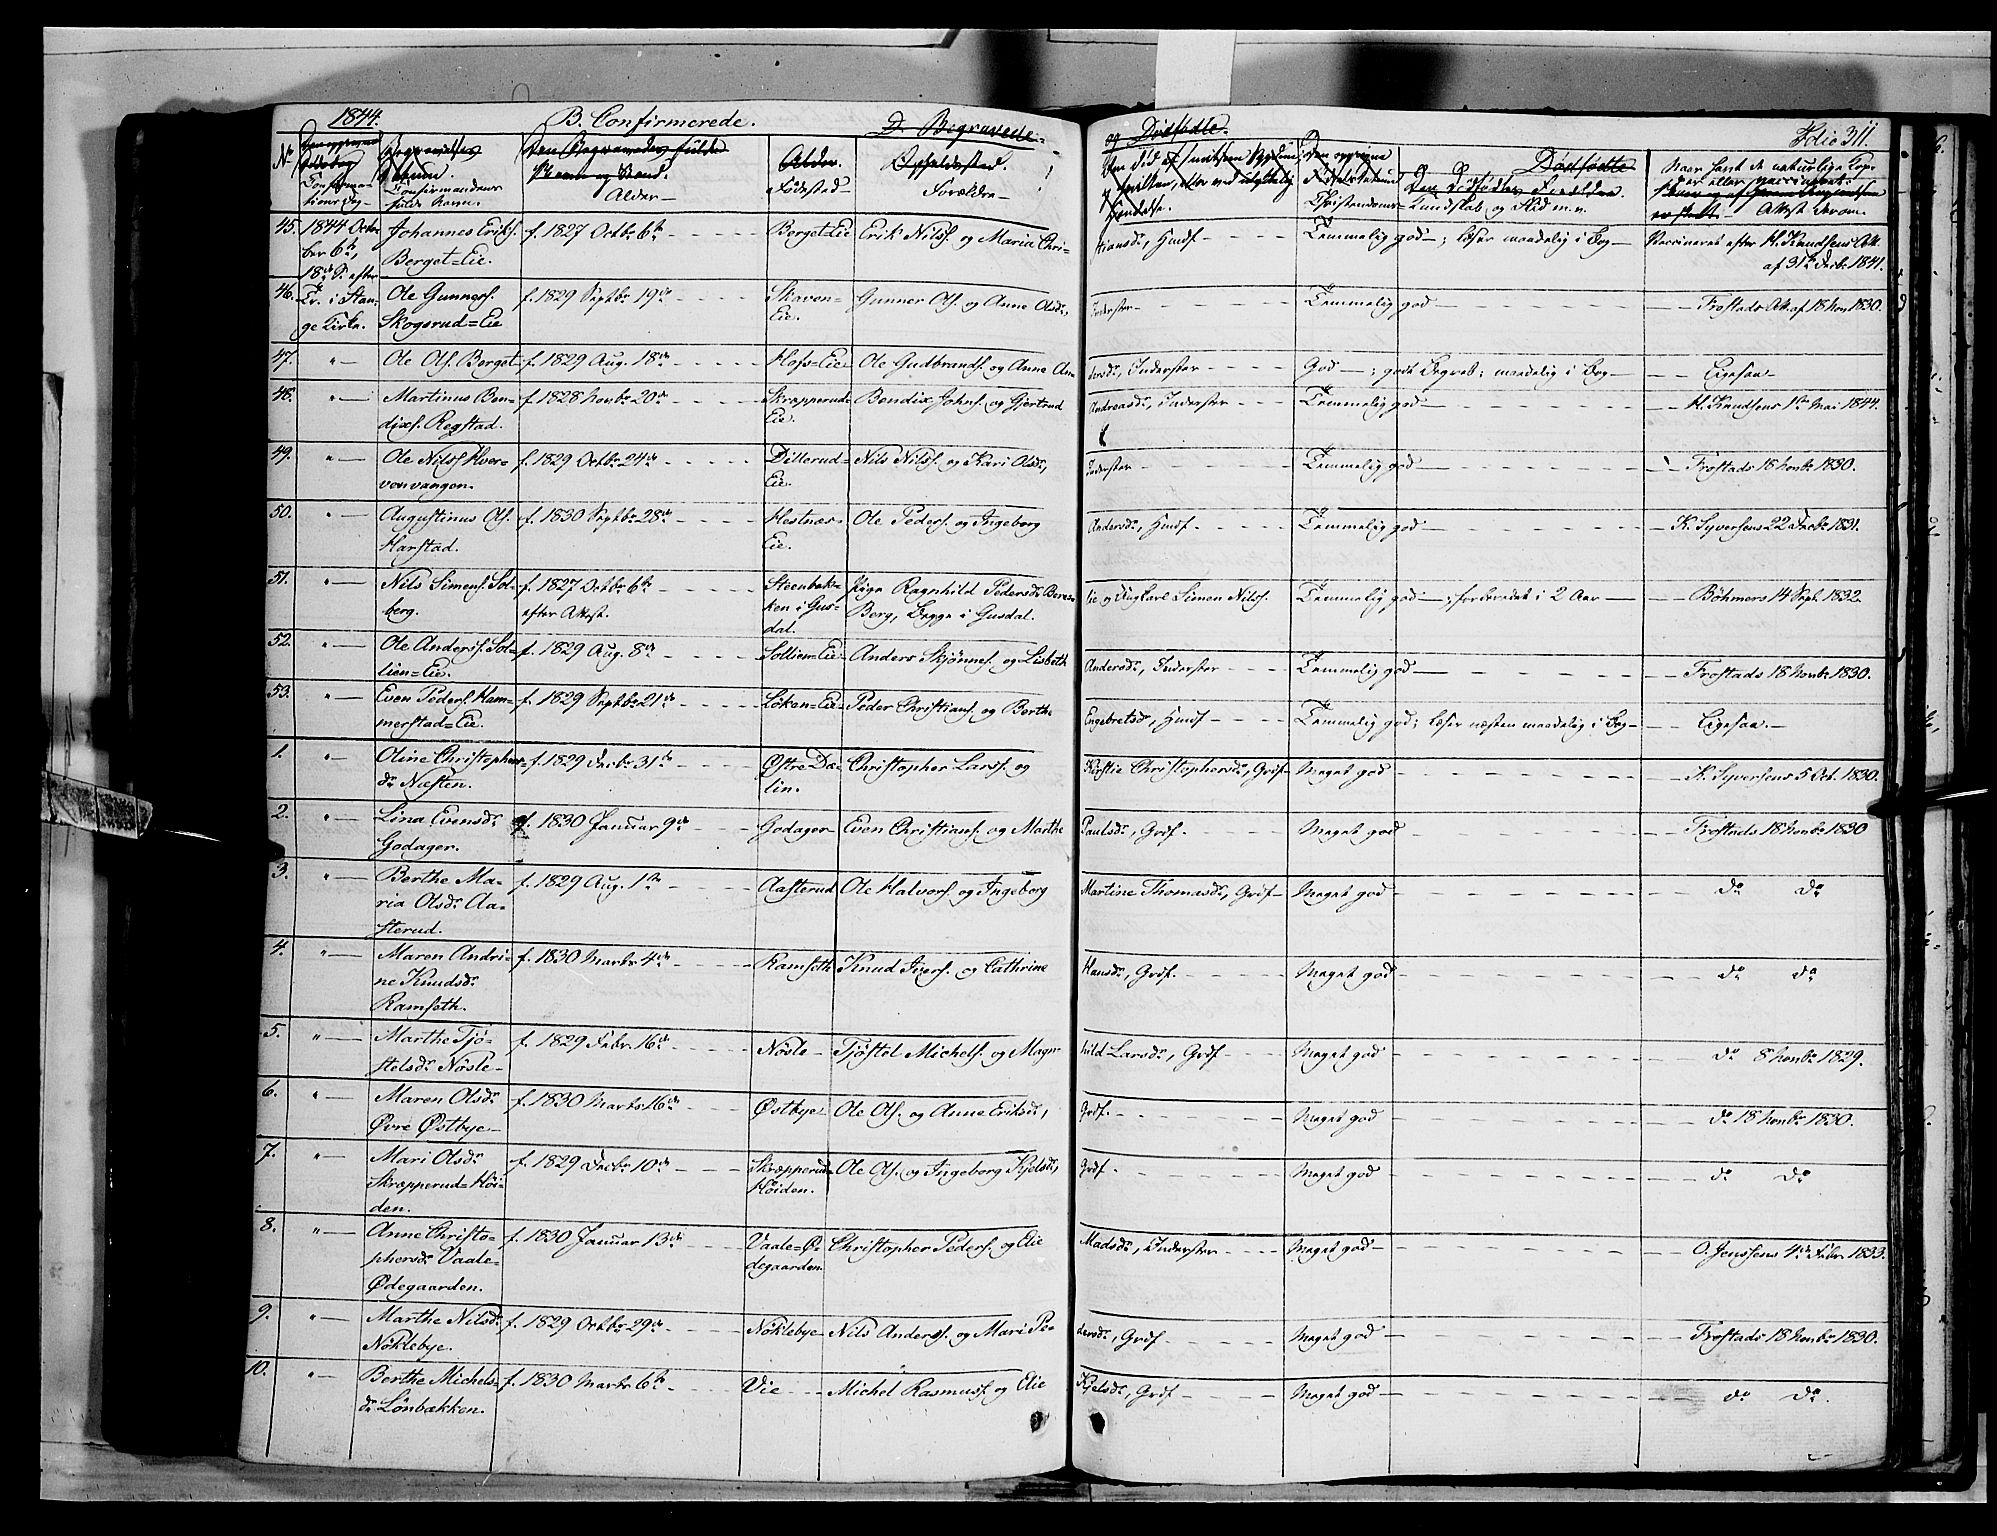 1844. B. Confirmerede. D. Begravede og Dødfødte. Folio 311.
No Confirmationsdag Confirmandens fulde Navn. Alder Fødested Forældre Christendoms-Kundskab og Flid m.v. Attest derom.
45. 1844 October 6te, 18de S. efter Tr. i Stange Kirke. Johannes Eriks. Berget=Eie. f. 1827 Octbr 6te Berget=Eie Erik Nils. og Maria Christiansdr, Husf. Temmelig god; læser maadelig i Bog Vaccineret efter H. Knudsens Att. af 31te Decbr 1841.
46. Ole Gunners. Skogsrud=Eie f. 1829 Septbr 19de Skaven=Eie. Gunner Ols. og Anne Olsdr, Inderster Temmelig god Frostads Att. af 18 Novbr 1830.
47. " Ole Ols. Berget f. 1829 Aug. 18de Hofs=Eie Ole Gudbrands. og Anne Andersdr, Inderster God; godt Begreb; maadelig i Bog Ligesaa
48. " Martinus Bendixs. Regstad. f. 1828 Novbr 20de Skræpperud=Eie. Bendix Johns. og Gjertrud Andreasdr, Inderster Temmelig god H. Knudsens 1ste Mai 1844.
49. " Ole Nils. Hvervenvangen. f. 1829 Octbr 24de Dillerud=Eie. Nils Nils. og Kari Olsdr, Inderster Temmelig god Frostads 18 Novbr 1830.
50. " Augustinus Ols. Harstad. f. 1830 Septbr 28de Hestnæs=Eie. Ole Peders. og Ingeborg Andersdr, Husf. Temmelig god K. Syversens 22 Decbr 1831.
51. " Nils Simens. Solberg. f. 1827 Octbr 6te efter Attest. Steenbakken i Gusdal. Pige Ragnhild Pedersdr Berg, begge i Gusdal. Eie og Ungkarl Simen Nils. Temmelig god; forberedet i 2 Aar Böhmers 14 Sept. 1832.
52. " Ole Anders. Sollien=Eie. f. 1829 Aug. 8de Sollien=Eie Anders Skjönnes. og Lisbeth Andersdr, Inderster Temmelig god Frostads 18 Novbr 1830.
53. " Even Peders. Hammerstad=Eie. f. 1829 Septbr 21de Löken=Eie Peder Christians. og Berthe Engebretsdr, Husf. Temmelig god; læser næsten maadelig i Bog Ligesaa.
1. " Oline Christophersdr Næsten. f. 1829 Decbr 31te Østre Dælin. Christopher Lars. og Kirstie Christophersdr, Grdf. Meget god K. Syversens 5 Oct. 1830.
2. " Lina Evensdr Godager. f. 1830 Januar 9de Godager Even Christians. og Marthe Paulsdr, Grdf. Meget god Frostads 18 Novbr 1830
3. " Berthe Maria Olsdr Aasterud. f. 1829 Aug. 1ste Aasterud Ole Halvors. og Ingeborg Martine Thomasdr, Grdf. Meget god do do
4. " Maren Andrine Knudsdr Ramseth. f. 1830 Marts 4de Ramseth Knud Ivers. og Cathrine Hansdr, Grdf. Meget god do do
5. " Marthe Tjöstelsdr Nösle f. 1829 Febr. 16de Nösle Tjöstel Michels. og Magnhild Larsdr, Grdf. Meget god do 8 Novbr 1829.
6. " Maren Olsdr Øvre Østbye f. 1830 Marts 16de Østbye Ole Ols. og Anne Eriksdr, Grdf. Meget god do 18 Novbr 1830.
7. " Mari Olsdr Skræpperud=Höiden. f. 1829 Decbr 10de Skræpperud=Höiden. Ole Ols. og Ingeborg Kjelsdr, Grdf. Meget god do do
8. " Anne Christophersdr Vaale=Ødegaarden. f. 1830 Januar 13de Vaale=Ødegaarden. Christopher Peders. og Elie Madsdr, Inderster Meget god O. Jenssens 4de Febr. 1833.
9. " Marthe Nilsdr Nöklebye. f. 1829 Octbr 29de Nöklebye Nils Anders. og Mari Pedersdr, Grdf. Meget god Frostads 18 Novbr 1830.
10. " Berthe Michelsdr Lönbækken. f. 1830 Marts 6te Vie Michel Rasmus. og Elie Kjelsdr, Grdf. Meget god do do.